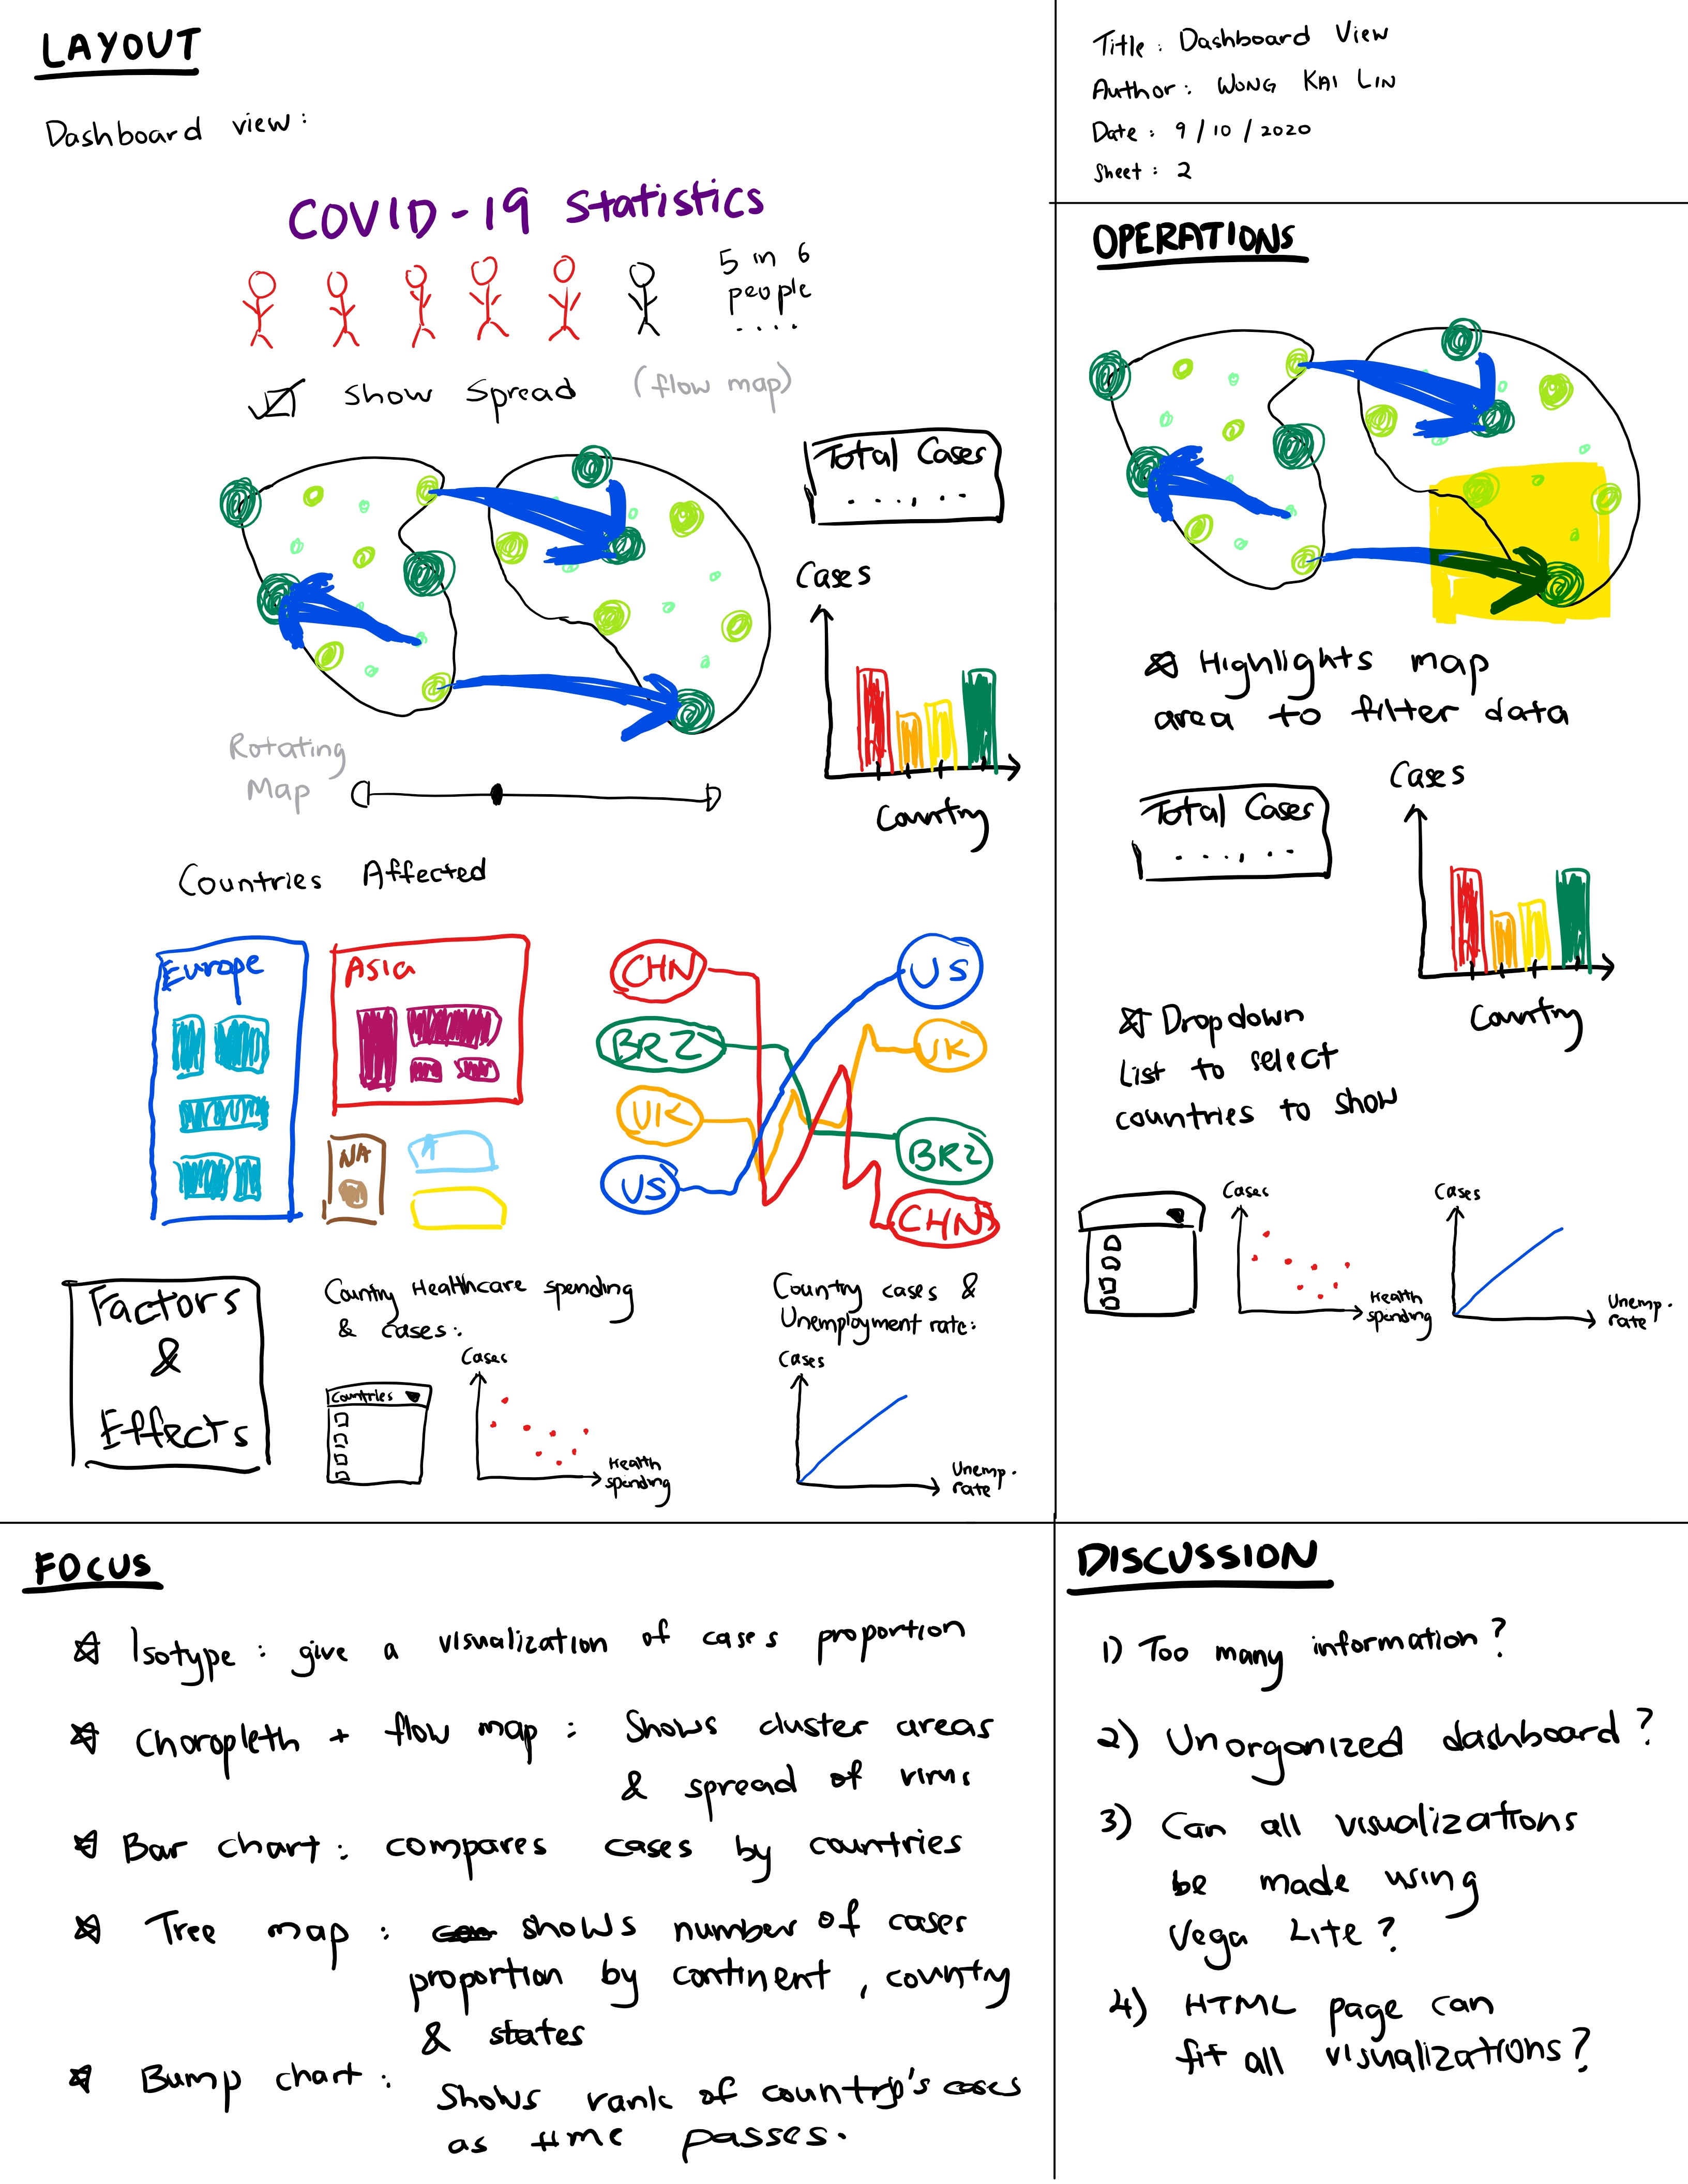 LAYOUT
Dashboard view:
COVID-19 Statistics
5 in 6
people
....
Show Spread (flow map)
Total Cases
...,..
Cases
Country
Rotating
Map
Countries Affected
Europe
Asia
NA
CHN
BRZ
UK
US
US
UK
BRZ
CHN
Factors
&
Effects
Country Healthcare spending
& cases:
Countries
Cases
Health
spending
Country cases &
Unemployment rate:
Cases
Unemp.
rate
Title: Dashboard View
Author: WONG KAI LIN
Date: 9/10/2020
Sheet: 2
OPERATIONS
Highlights map
area to filter data
Total Cases
...,..
Cases
Country
Dropdown
List to select
countries to show
Cases
Health
spending
Cases
Unemp.
rate
FOCUS
Isotype: give a visualization of cases proportion
Choropleth + flow map: Shows cluster areas
& spread of virus
Bar chart: compares cases by countries
Tree map: shows number of cases
proportion by continent, country
& states
Bump chart: Shows rank of country's cases
as time passes.
DISCUSSION
1) Too many information?
2) Unorganized dashboard?
3) Can all visualizations
be made using
Vega Lite?
4) HTML page can
fit all visualizations?